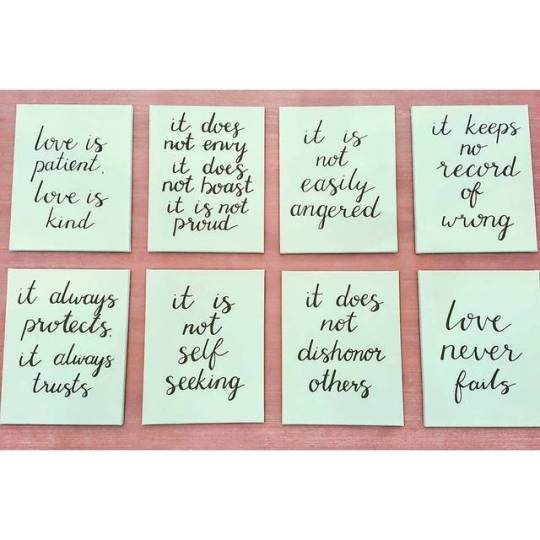 love is
patient.
love is
kind
it does
not envy
it does
not boast
it is not
proud
it is
not
easily
angered
it keeps
no
record
of
wrong
it always
protects.
it always
trusts
it is
not
self
seeking
it does
not
dishonor
others
love
never
fails